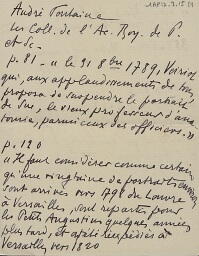 André Fontaine
Les Coll. de l'Ac. Roy. de P.
et Sc.
p. 81 - "le 31 8bre 1789, Voiriot
qui, aux applaudissements de tous
proposa de suspendre le portrait
de Sue, le vieux professeur d'ana-
tomie, parmi ceux des officiers."
p. 120
"Il faut considérer comme certain
qu'une vingtaine de portraits environ
sont arrivés vers 1798 du Louvre
à Versailles, sont repartis pour
les Petits Augustins quelques années
plus tard, et après réexpédiés à
Versailles vers 1820